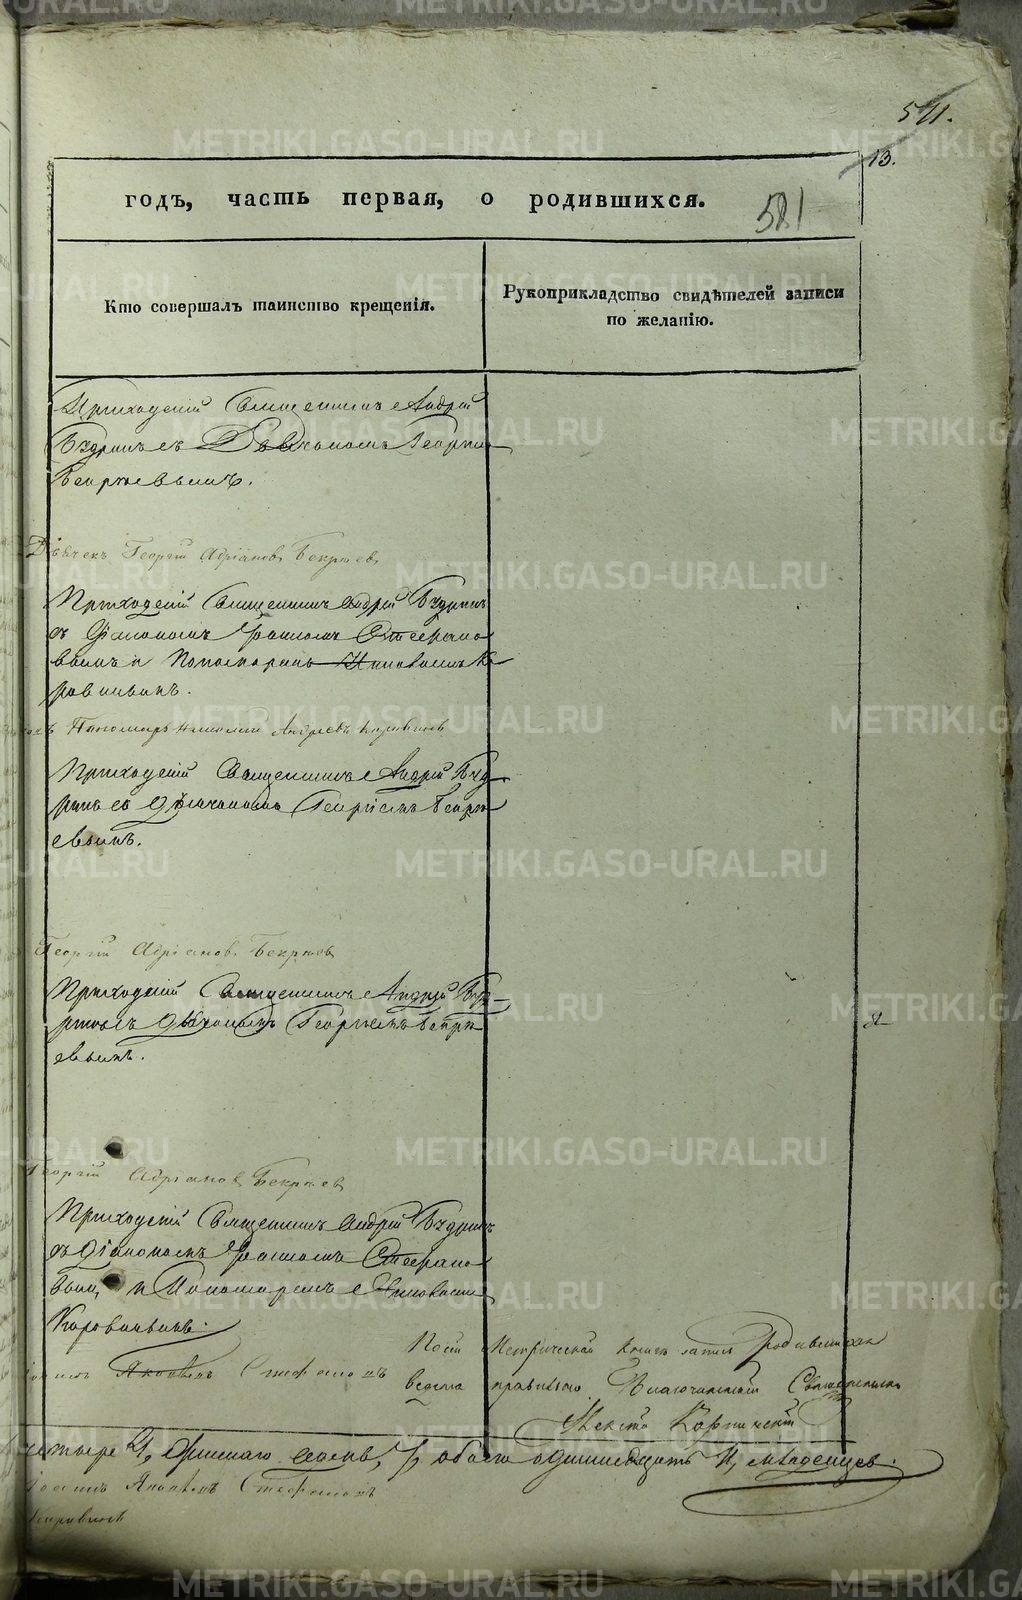 511.
13.
годъ, часть первая, о родившихся.
581
Кто совершалъ таинство крещенія.
Рукоприкладство свидѣтелей записи
по желанію.
Приходскій Священникъ Андрей
Будринъ съ Дьячкомъ Георгіе
Бекрѣевымъ.
Дьячекъ Георгій Адріановъ Бекрѣевъ
Приходскій Священникъ Андрей Будринъ
съ Діакономъ Стефано
вымъ и Пономаремъ Ка
ровинымъ.
Пономарь Андреевъ Коровинъ
Приходскій Священникъ Андрей Буд
ринъ съ Дьячкомъ Георгіемъ Бекрѣ
евымъ.
Георгій Адріановъ Бекрѣевъ
Приходскій Священникъ Андрей Буд
ринъ съ Дьячкомъ Георгіемъ Бекрѣ
евымъ.
Георгій Адріановъ Бекрѣевъ
Приходскій Священникъ Андрей Будринъ
съ Діакономъ Стефано
вымъ, и Пономаремъ
Коровинымъ.
Стефановъ
Метрической книги запись Родившихся
ведена правильно. Благочинный Священникъ
четыре 4, женскаго семь, 7, обоего одиннадцать 11, младенцевъ.
Стефановъ
Коровинъ
METRIKI.GASO-URAL.RU